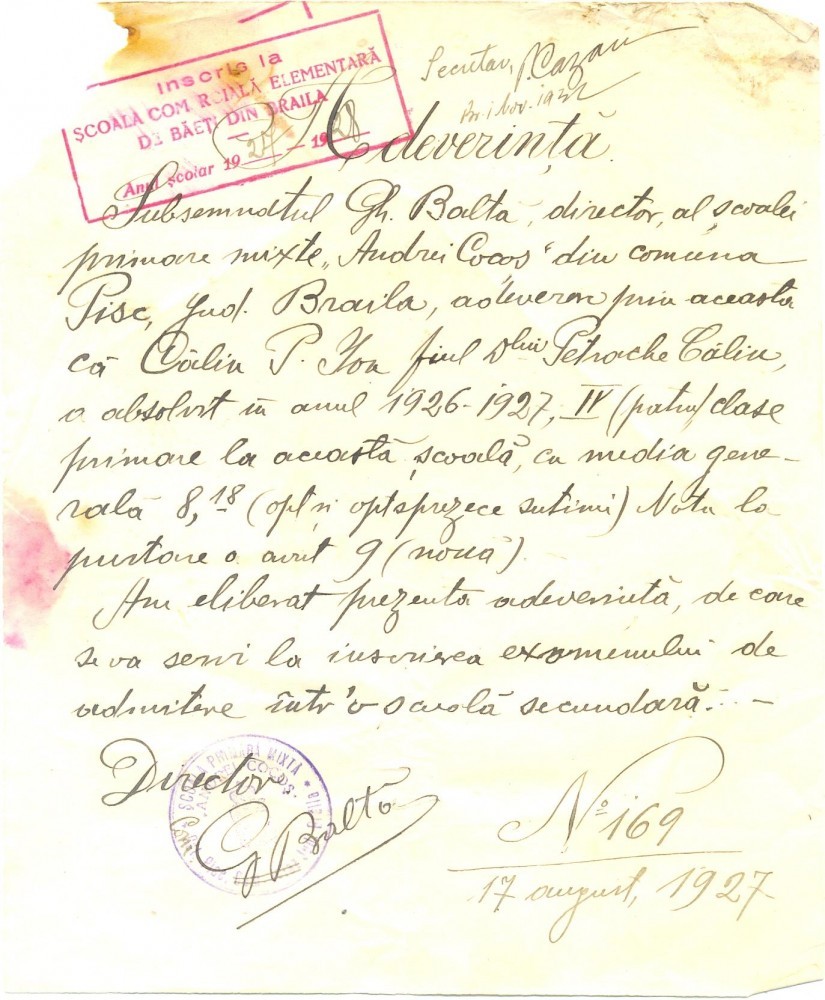 Inscris la
ŞCOALA COM RCIALĂ ELEMENTARĂ
DE BĂEŢI DIN BRAILA
Anul Şcolar 1927 - 1928
Secretar, Cazan
1 Nov. 192
Adeverinţă
Subsemnatul Gh. Baltă, director, al şcoalei
primare mixte „Andrei Cocoş" din comuna
Pisc, Jud. Braila, adeveresc prin aceasta
că Călin P. Ion fiul Dlui Petrache Călin,
a absolvit în anul 1926-1927, IV (patru) clase
primare la această şcoală, cu media gene-
rală 8,18 (opt şi optsprezece sutimi) Nota la
purtare a avut 9 (nouă)
Am eliberat prezenta adeverintă, de care
se va servi la inscrierea examenului de
admitere într'o scoală secundară. —
Director
G Baltă
ŞCOALA PRIMARĂ MIXTĂ
No 169
17 august, 1927